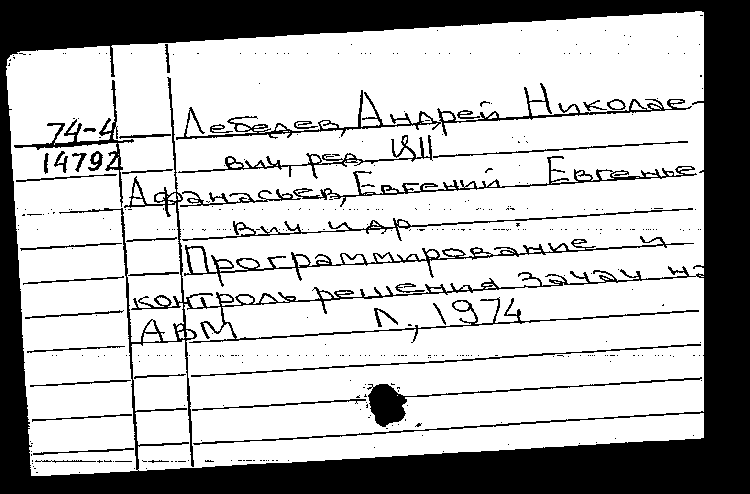 74-4
14792
Лебедев, Андрей Николае-
вич, ред.
Афанасьев, Евгений Евгенье-
вич и др.
Программирование и
контроль решения задач на
АВМ Л., 1974